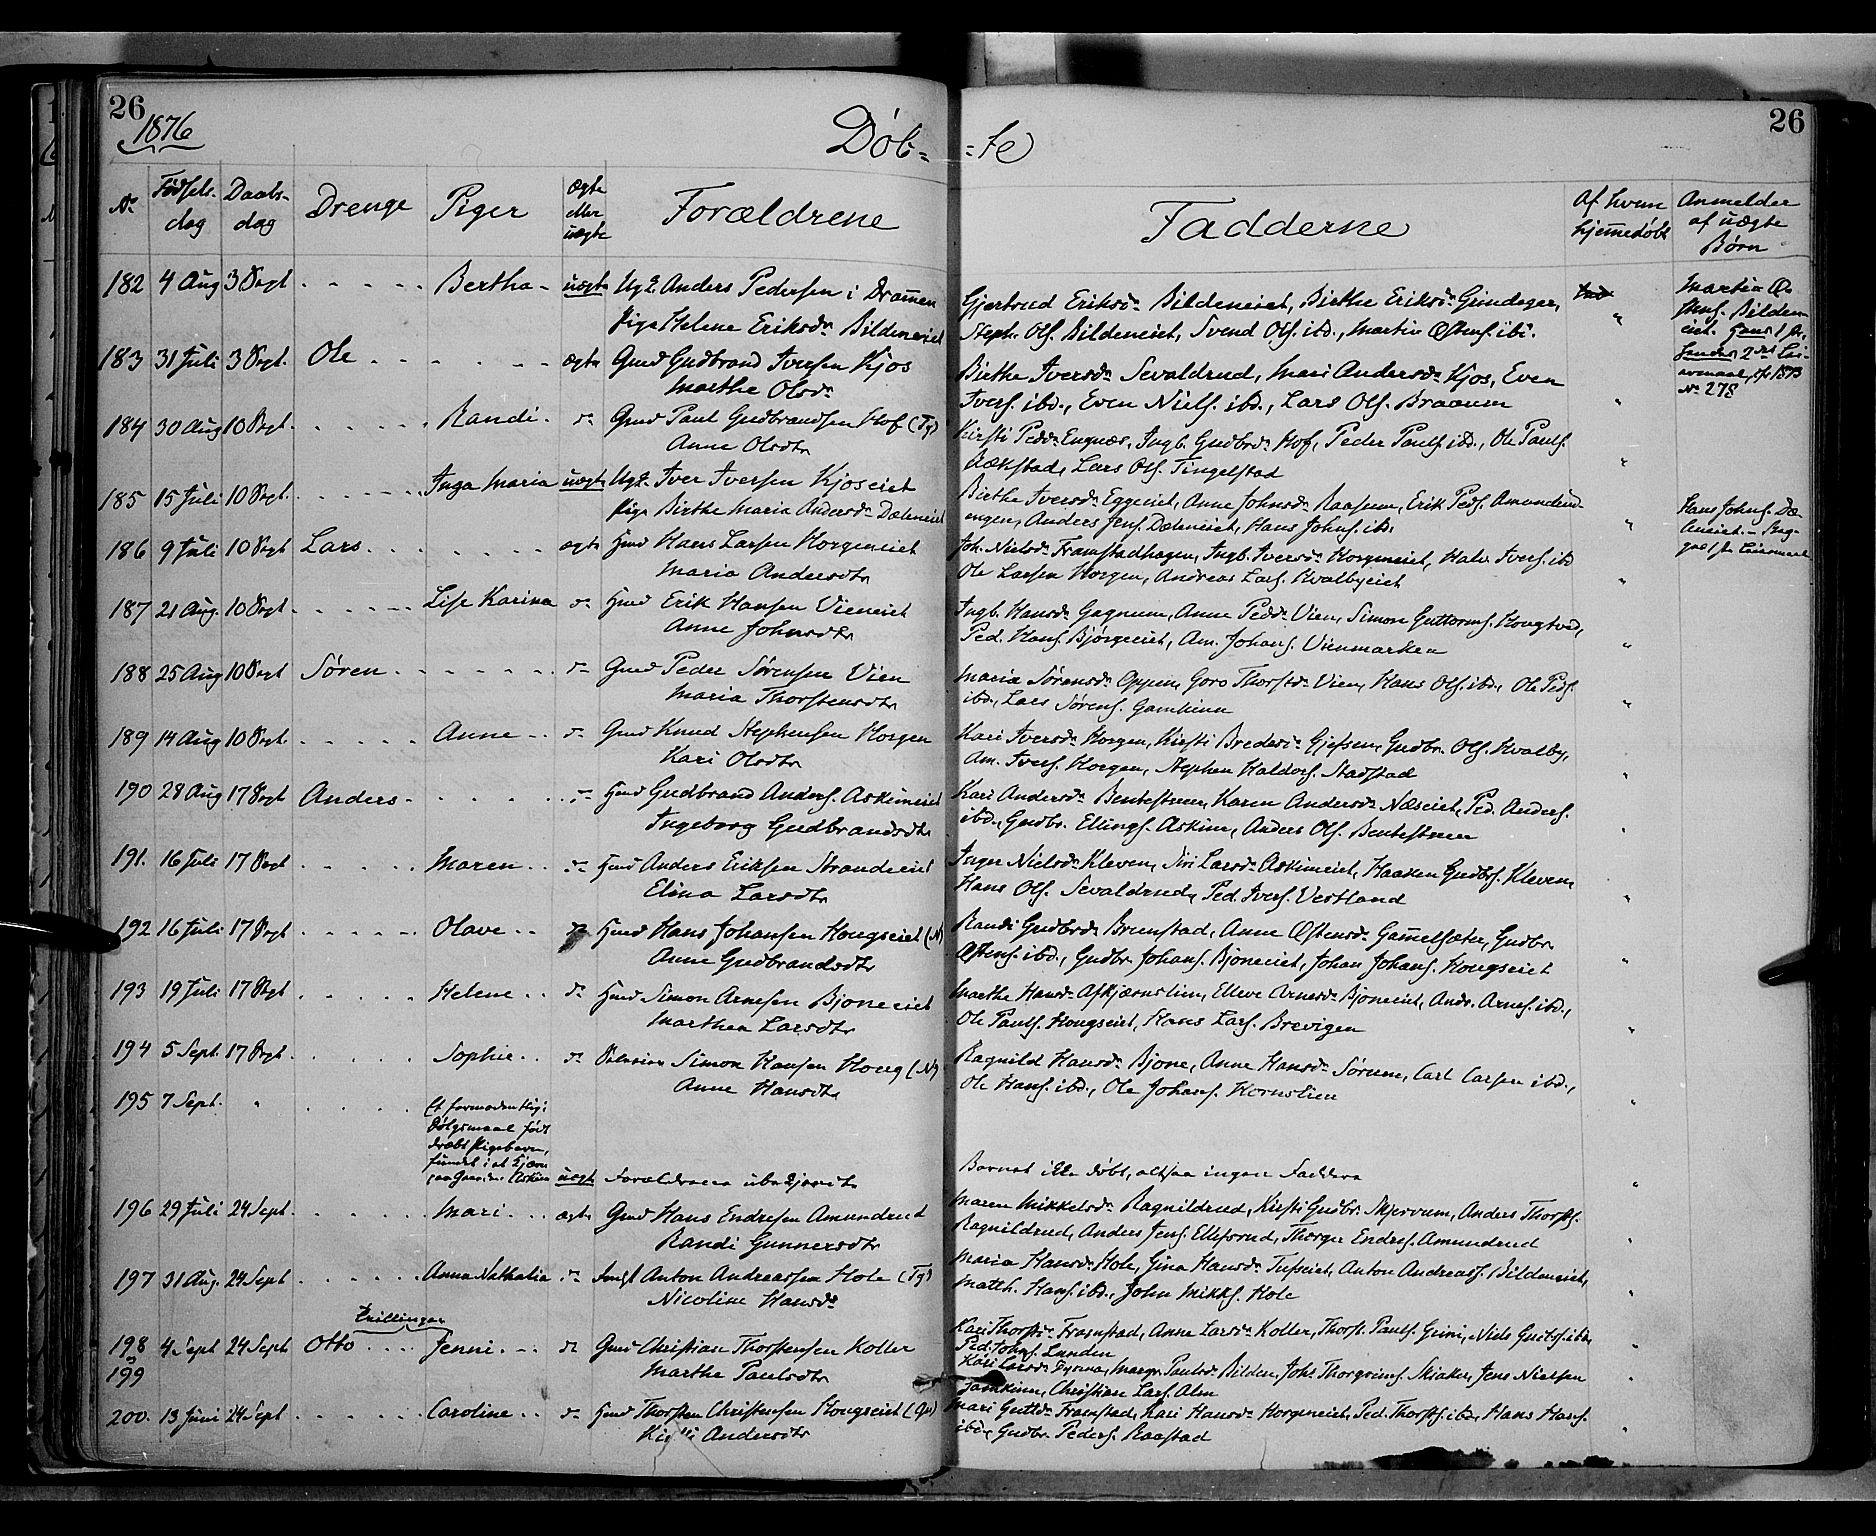 26
1876
Døb- -te
26
No Fødsels- dag Daabs- dag Drenge Piger Ægte eller uægte Forældrene Fadderne Af hvem hjemmedøbt Anmelder af uægte Børn
182 4 Aug 3 Sept. Bertha uægte Ugk. Anders Pedersen i Drammen
Pige Helene Eriksdr Bildeneiet
Gjertrud Eriksdr Bildeneiet, Birthe Eriksdr Grindager,
Steph. Ols. Bildeneiet, Svend Ols. ibd., Martin Østens. ibd.
Martin Ø-
stens. Bilden-
eiet. Hans 1ste,
hendes 2det Lei-
ermaal, cfr 1873
No 278
183 31 Juli 3 Sept. Ole ægte Gmd Gudbrand Iversen Kjos
Marthe Olsdr
Birthe Iversdr Sevaldrud, Mari Andersdr Kjos, Even
Ivers. ibd., Even Niels. ibd., Lars Ols. Braaum
184 30 Aug 10 Sept. Randi do Gmd Paul Gudbrandsen Hof (Tg)
Anne Olsdtr
Kirsti Pedsdr Engnæs, Ingb. Gudbrdr Hof, Peder Pauls. ibd., Ole Pauls.
Rækstad, Lars Ols. Tingelstad
185 15 Juli 10 Sept. Inga Maria uægte Ugk. Iver Iversen Kjoseiet
Pige Birthe Maria Andersdr Dæleneiet
Birthe Iversdr Eggeeiet, Anne Johnsdr Raasum, Erik Peds. Amundrud-
engen, Anders Jens. Dæleneiet, Hans Johns. ibd.
Hans Johns. Dæ-
186 9 Juli 10 Sept Lars ægte Hmd Hans Larsen Horgeneiet
Maria Andersdtr
Joh. Nielsdr Framstadhagen, Ingb. Iversdr Horgeneiet, Halv. Ivers. ibd
Ole Larsen Horgen, Andreas Lars. Hvalbyeiet
187 21 Aug. 10 Sept Lise Karina do Hmd Erik Hansen Vieneiet
Anne Johnsdtr
Ingb. Hansdr Gagnum, Anne Pedsdr Vien, Simon Guttorms. Hougtved,
Ped. Hans. Bjørgeeiet, Am. Johans. Vienmarken
188 25 Aug 10 Sept Søren do Gmd Peder Sørensen Vien
Maria Thorstensdtr
Maria Sørensdr Oppen, Goro Thorstdr Vien, Hans Ols. ibd., Ole Peds.
ibd., Lars Sørens. Gamkinn
189 14 Aug 10 Sept. Anne do Gmd Knud Stephensen Horgen
Kari Olsdtr
Kari Iversdr Horgen, Kirsti Bredesdr Gjefsen, Gudbr. Ols. Hvalby,
Am. Ivers. Horgen, Stephen Haldors. Stadstad
190 28 Aug 17 Sept Anders do Hmd Gudbrand Anders. Askimeiet
Ingeborg Gudbrandsdtr
Kari Andersdr Bentestuen, Karen Andersdr Næseiet, Ped. Anders.
ibd., Gudbr. Ellings. Askim, Anders Ols. Bentestuen
191. 16 Juli 17 Sept Maren do Hmd Anders Eriksen Strandeeiet
Elina Larsdtr
Inger Nielsdr Kleven, Siri Larsdr Askimeiet, Haaken Gudbs. Kleven,
Hans Ols. Sevaldrud, Ped. Ivers. Vestland
192 16 Juli 17 Sept Olave do Hmd Hans Johansen Hougseiet (N)
Anne Gudbrandsdtr
Randi Gudbrdr Brunstad, Anne Østensdr Gamelsæter, Gudbr.
Østens. ibd., Gudbr. Johans. Bjoneeiet, Johan Johans. Hougseiet
193 19 Juli 17 Sept Helene do Hmd Simon Arnesen Bjoneeiet
Marthea Larsdtr
Marthe Hansdr Askjærnslien, Elleve Arnesdr Bjoneeiet, Andr. Arnes. ibd.,
Ole Pauls. Hougseiet, Hans Lars. Brevigen
194 5 Sept. 17 Sept Sophie do Simon Hansen Houg (N)
Anne Hansdtr
Ragnild Hansdr Bjone, Anne Hansdr Sørum, Carl Carlsen ibd.,
Ole Hans. ibd., Ole Johans. Hornslien
195 7 Sept. Et formodentlig i
Dølgsmaal født
dræbt Pigebarn,
fundet i et Tjern
paa Gaarden Askim uægte Forældrene ubekjendte
Barnet ikke døbt, altsaa ingen Faddere
196 29 Juli 24 Sept Mari ægte Gmd Hans Endresen Amundrud
Randi Gunnersdtr
Maren Mikkelsdr Ragnildrud, Kirsti Gudbr. Skjervum, Anders Thorsts.
Ragnildrud, Anders Jens. Ellefsrud, Thorger Endres. Amundrud
197 31 Aug. 24 Sept Anna Nathalia do Anton Andreassen Hole (Tg)
Nicoline Hansdr
Maria Hansdr Hole, Gina Hansdr Tufseiet, Anton Andreass. Bildeneiet,
Matth. Hans. ibd., John Mikks. Hole
Tvillinger
198 4 Sept 24 Sept Otto Jenni do Gmd Christian Thorstensen Koller
& 199 Marthe Paulsdtr
Kari Thorstdr Framstad, Anne Larsdr Koller, Thorst. Pauls. Grini, Niels ibd.
Ped. Johns. Lunden
Kari Larsdr Dynna, Margr. Paulsdr Bilden, Joh. Thorgrims. Skiaker, Jens Nielsen
Gamkinn, Christian Lars. Alm
200. 13 Juni 24 Sept Caroline do Hmd Thorsten Christensen Hougseiet (Gr)
Andersdtr
Mari Guttdr Framstad, Kari Hansdr Horgeneiet, Ped. Thorsts. ibd., Hans Hans.
ibd., Gudbr. Peders. Raastad